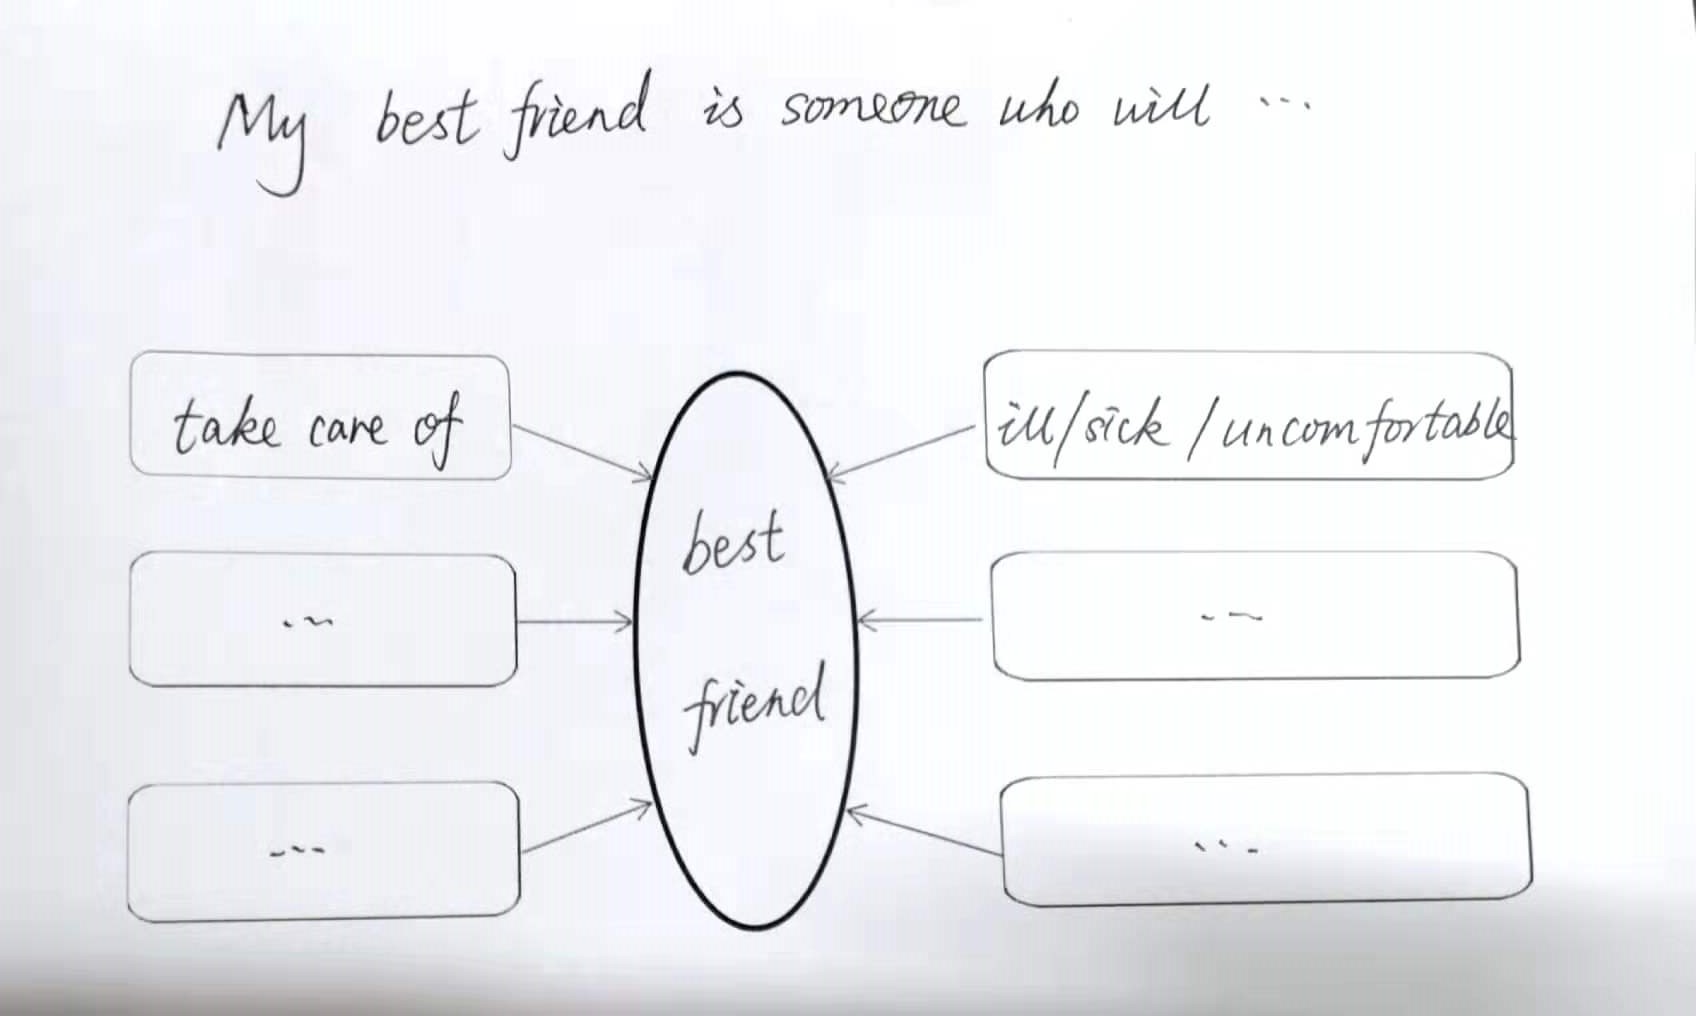 My best friend is someone who will ...
take care of
ill/sick/uncomfortable
best
friend
...
...
...
...